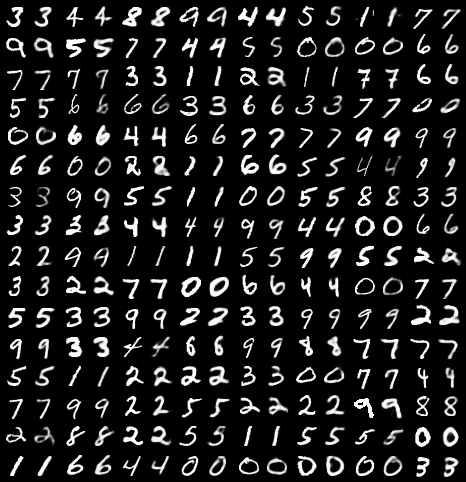 3 3 4 4 8 8 9 9 4 4 5 5 1 1 7 7
9 9 5 5 7 7 4 4 5 5 0 0 0 0 6 6
7 7 7 7 3 3 1 1 2 2 1 1 7 7 6 6
5 5 6 6 6 6 3 3 6 6 3 3 7 7 0 0
0 0 6 6 4 4 6 6 7 7 7 7 9 9 9 9
6 6 0 0 2 2 1 1 6 6 5 5 4 4 9 9
3 3 9 9 5 5 1 1 0 0 5 5 8 8 3 3
3 3 3 3 4 4 4 4 9 9 4 4 0 0 6 6
2 2 9 9 1 1 1 1 5 5 9 9 5 5 2 2
3 3 2 2 7 7 0 0 6 6 4 4 0 0 7 7
5 5 3 3 9 9 2 2 3 3 9 9 9 9 2 2
9 9 3 3 4 4 6 6 9 9 8 8 7 7 7 7
5 5 1 1 2 2 2 2 3 3 0 0 7 7 4 4
7 7 9 9 2 2 5 5 2 2 2 2 9 9 8 8
2 2 8 8 2 2 5 5 1 1 5 5 5 5 0 0
1 1 6 6 4 4 0 0 0 0 0 0 0 0 3 3